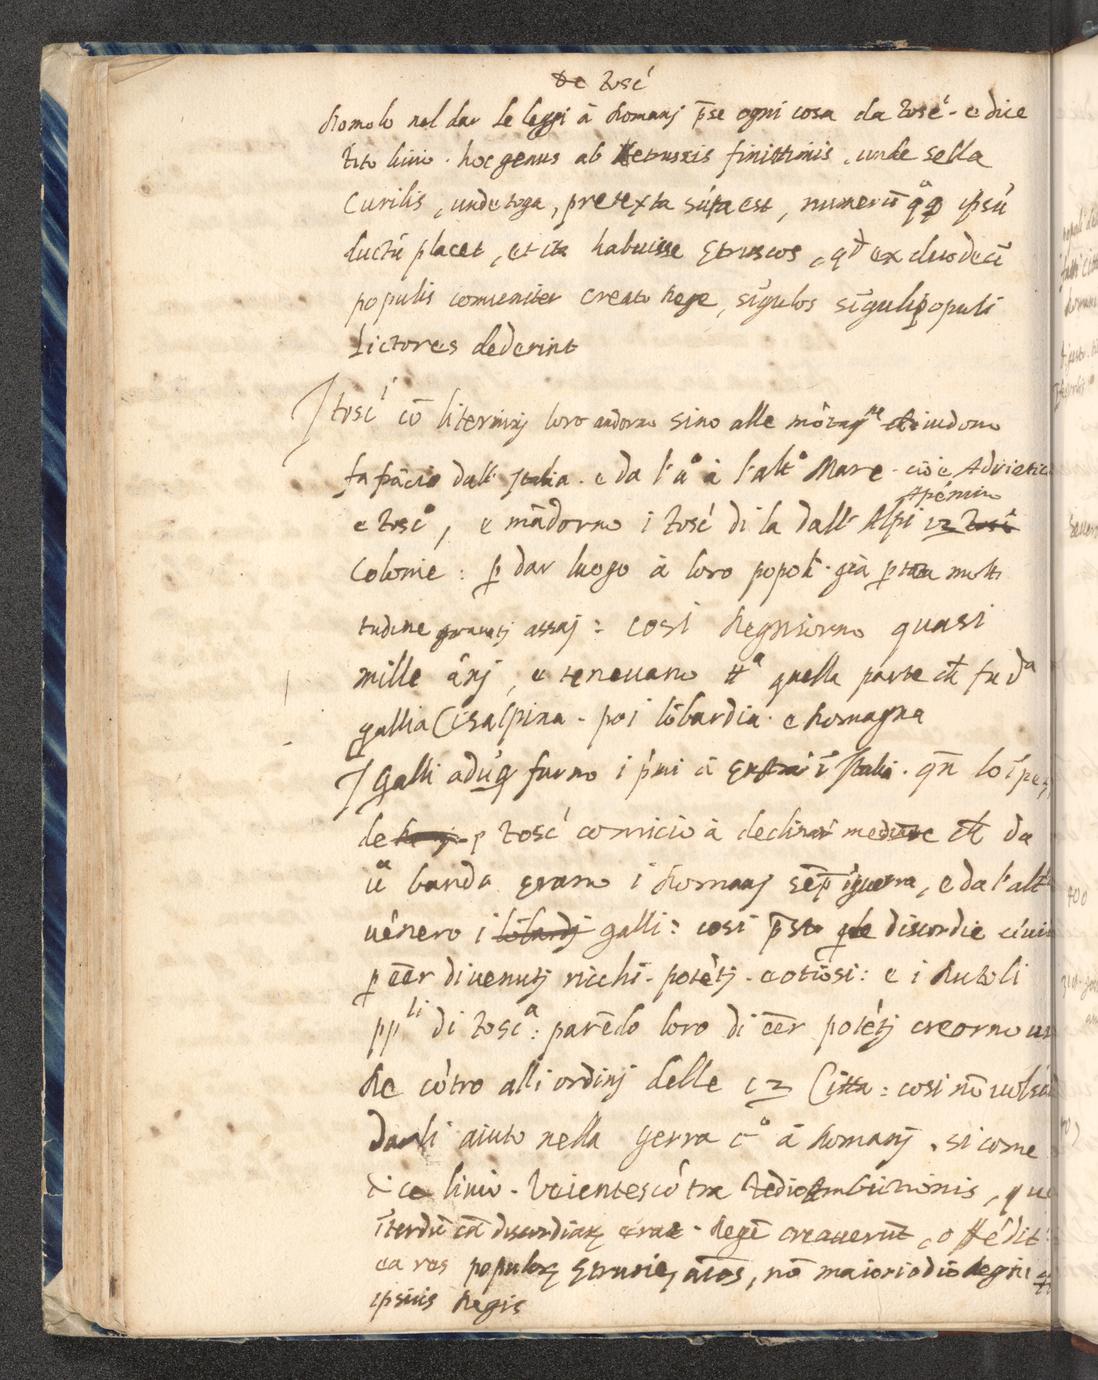 De Tosc̃i
Romolo nel dar le leggi à Romanj p̃se ogni cosa da Tosc̃i - e dice
tito livio. hoc genus ab etruscis finittimis, unde sella
Curilis, unde toga, pretexta sũpta est, numerũ q̃q ipsũ
ductũ placet, et ita habuisse Etruscos, q̃d ex duodecĩ
populis comuniter creato Rege, sĩgulos sĩguli populi
Lictores dederint
I tosc̃i cõ liter loro andorno sino alle mõtagne che
la dall' Italia. e da l'uo à l'alto Mare - cioè Adriatico
e toscº, e mãdorno i tosc̃i di la dall' Alpi Apẽnino 12
Colonie: p̱ dar luogo à loro popoli. già p̱ tãta multi
tudine assaj: cosi Regniorno quasi
mille ãnj, e tenevano ttª quella parte ch̃ fu da
gallia Cisalpina - poi lõbardia. e Romagna
I galli adũq̃ furno i p̃mi à ẽtrar ĩ Italia. qñ lo ĩpe
de Tosc̃i comĩcio à declinar mediãte ch̃ da
ũa banda erano i Romanj sẽp̱ ĩ guerra, e da l'alt
vẽnero i lõbardj galli: cosi p̃sto p̱ le discordie civi
p̱ eẽr divenutj ricchi - potẽtj - e otiosi: e i Rutoli
ppli di toscª: parẽdo loro di eẽr potẽtj creorno un
Re cõtro alli ordinj delle 12 Citta: cosi nõ volsẽ
darli aiuto nella gerra cº à Romanj. si come
dice livio - Veientes cõtra tedio Ambitionis, que
ĩterdũ cã discordiaꝝ erat - Regẽ creaverũt, offẽdit
ea res populoꝝ Etrurie ãios, nõ maiori odio Regni
ipsius Regis